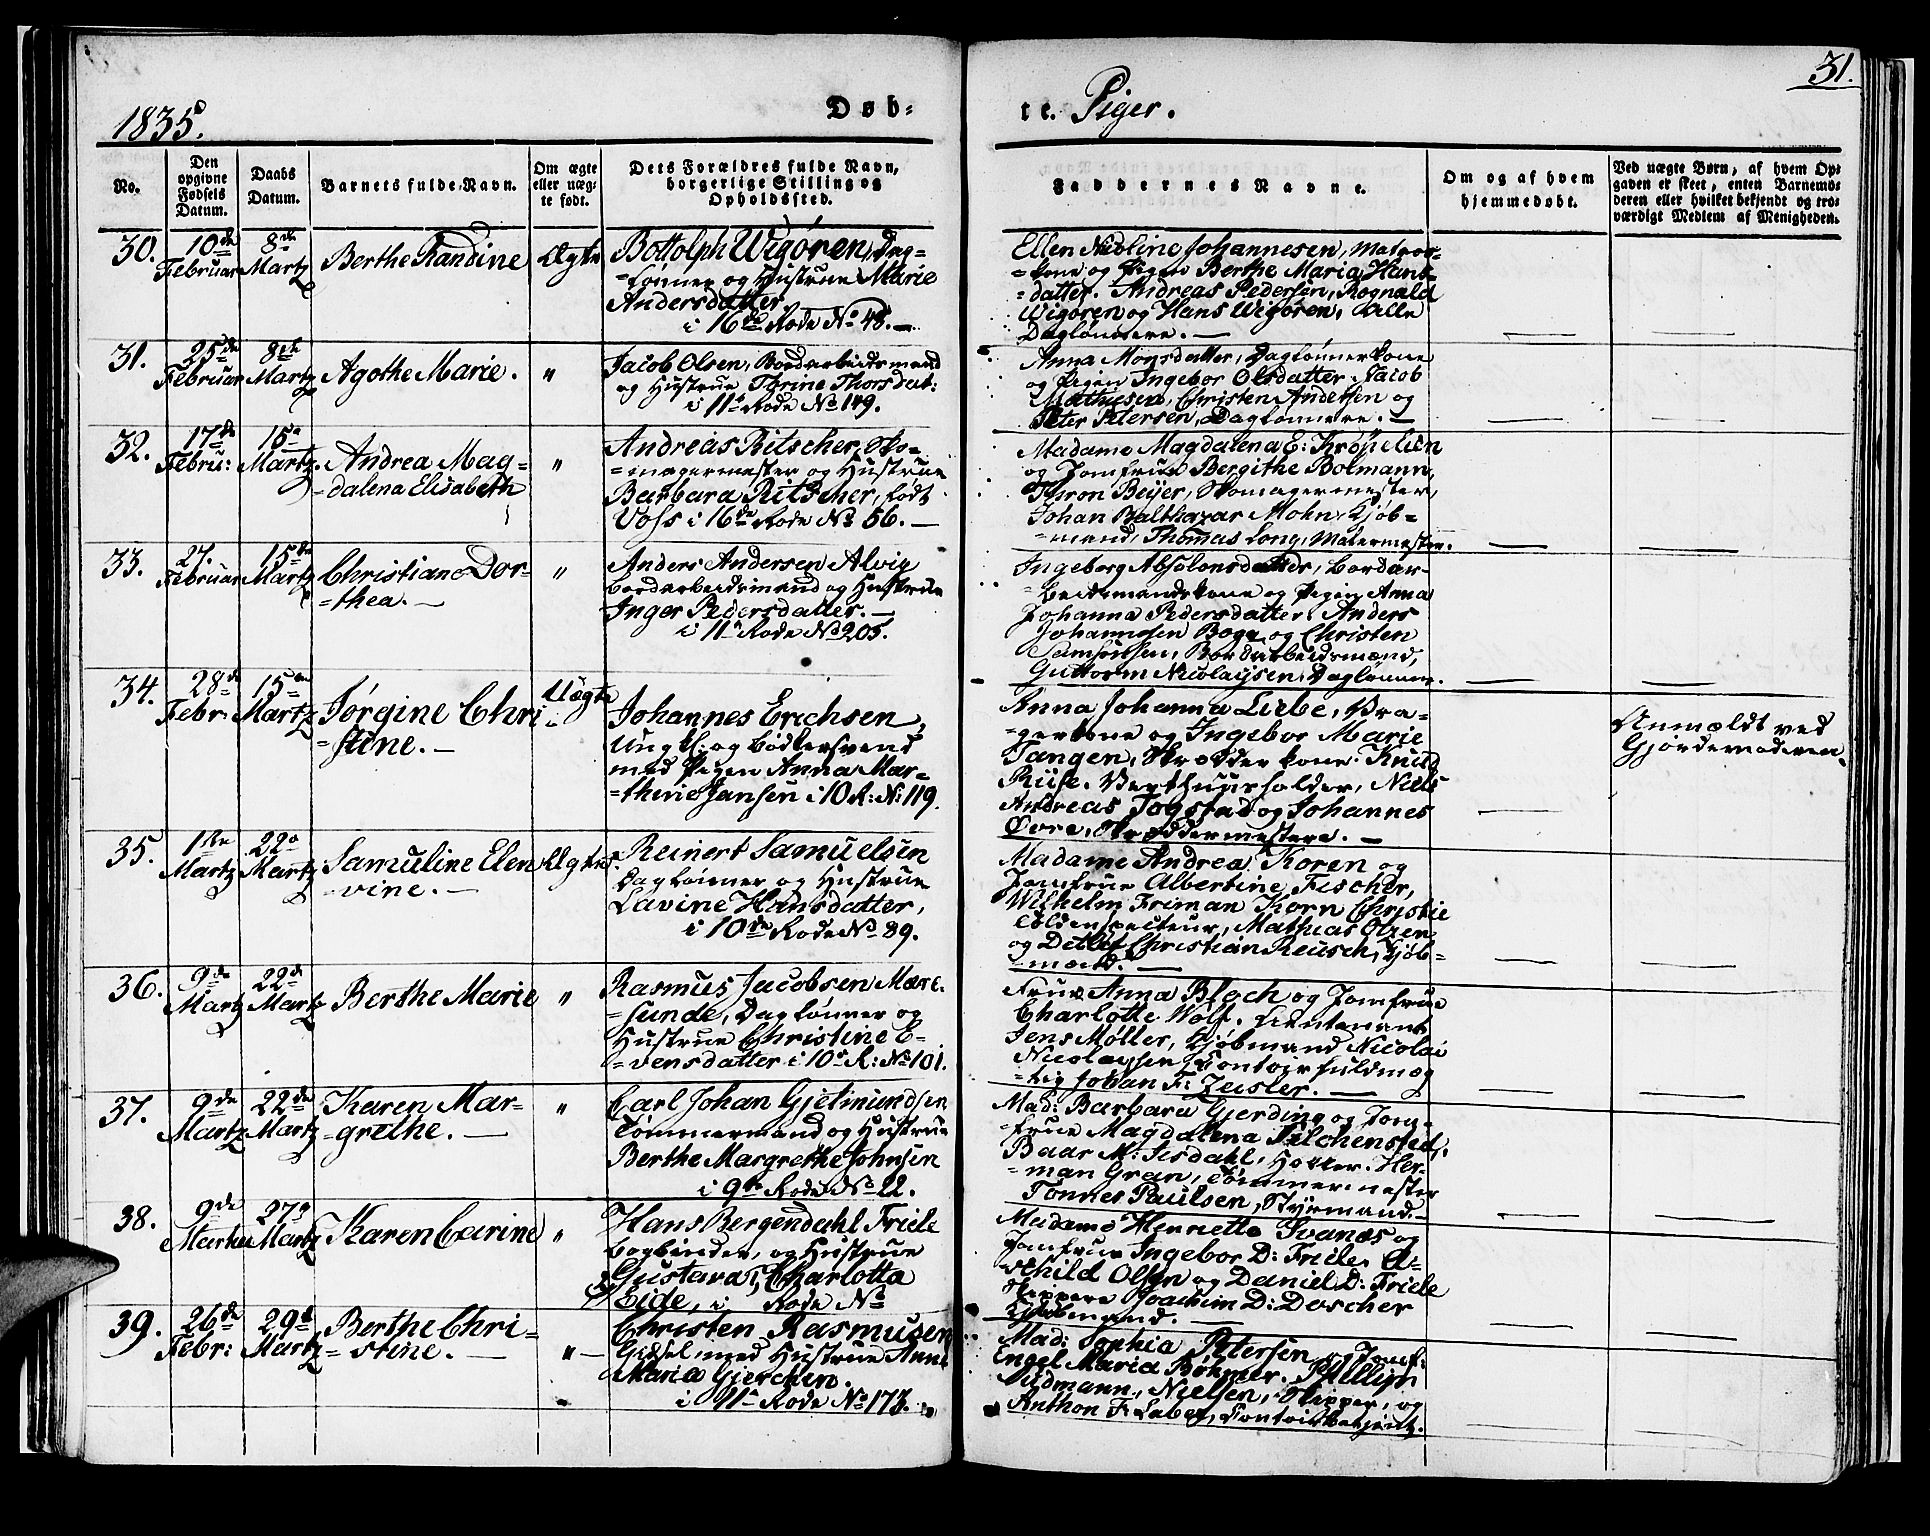 31.
1835.
Døb-
te Piger.
No.
Den opgivne Fødsels Datum.
Daabs Datum.
Barnets fulde Navn.
Om ægte eller uæg-te født.
Dets Forældres fulde Navn, borgerlige Stilling og Opholdssted.
Faddernes Navne.
Om og af hvem hjemmedøbt.
Ved uægte Børn, af hvem Op-
gaven er skeet, enten Barnemo-
deren eller hvilket bekjendt og tro-
værdigt Medlem af Menigheden.
30.
10de Februar
8de Martz
Berthe Randine
Ægte
Bottolph Wigøren, Dag-
-lønner og Hustrue Marie
Andersdatter
i 16de Rode No 48. —
Ellen Nicoline Johannesen, Matros-
-kone og Pigen Berthe Maria Hans-
-datter. Andreas Pedersen, Rognald
Wigøren og Hans Wigøren, Alle
Daglønnere. —
31.
25de Februar
8de Martz
Agothe Marie.
"
Jacob Olsen, Bordarbeidsmand
og Hustrue Thrine Thorsdat:
i 11te Rode No 149.
Anna Monsdatter, Daglønnerkone
og Pigen Ingebor Olsdatter. Jacob
Mathiesen, Christen Andersen og
Peter Petersen, Daglønnere. —
32.
17de Febru:
15de Martz.
Andrea Mag-
-dalena Elisabeth
"
Andreas Ritscher, Sko-
-magermester og Hustrue
Barbara Ritscher, født
Voss i 16de Rode No 56. —
Madame Magdalena E:
og Jomfrue Bergithe Bolmann,
Beijer, Skomagermester,
Johan Balthazar Mohn, Kjøb-
-mand, Thomas Long, Malermester.
33.
27. Februar
15de Martz
Christiane Dor-
-thea. —
"
Anders Andersen Alvig
Bordarbeidsmand og Hustrue
Inger Pedersdatter. —
i 11te Rode No 205.
Ingeborg Absolonsdatter, Bordar-
-beidsmandskone og Pigen Anna
Johanna Pedersdatter. Anders
Johannesen Boge og Christen
Samsonsen, Bordarbeidsmænd,
Guttorm Nicolaysen, Daglønner.
34.
28de Febr:
15de Martz
Jørgine Chri-
-stine. —
Uægte
Johannes Erichsen,
Ungkl: og Bødkersvend
med Pigen Anna Mar-
-therie Jansen i 10 R: No 119.
Anna Johanna Liebe, Dra-
-gerkone og Ingebor Marie
Tangen, Skrædderkone. Knud
Riise, Værthuusholder, Niels
Andreas Togstad og Johannes
Øvre, Skræddermestere. —
Anmeldt ved
Gjordemoderen.
35.
1ste Martz
22de Martz
Samuline Elen
-vine. —
Ægte
Reinert Samuelsen
Daglønner og Hustrue
Lavine Hansdatter,
i 10de Rode No 89.
Madame Andrea Koren og
Jomfrue Albertine Fischer,
Wilhelm Friman Korn Christie
Toldinspecteur, Mathias Olsen
og Detlef Christian Reusch, Kjøb-
-mænd. —
36.
9de Martz
22de Martz
Berthe Marie
"
Rasmus Jacobsen Mare-
-sunde, Daglønner og
Hustrue Christine E-
-vensdatter i 10de R: No 101.
Frue Anna Bloch og Jomfrue
Charlotte Wolf. Lieutenant
Jens Møller, Kjøbmand Nicolai
Nicolaysen, Contoirfuldmæg
-tig Johan F: Zeisler. —
37.
9de Martz
22de Martz
Karen Mar-
-grethe. —
"
Carl Johan Gjelmundsen
Tømmermand og Hustrue
Berthe Margrethe Johnsen
i 9de Rode No 22.
Mad: Barbara Gjerding og Jom-
-frue Magdalena
Baar M: Her-
-man Gran, Tømmermester
Tønnes Paulsen, Styrmand. —
38.
9de Martz
27de Martz
Karen Carine
"
Hans Bergendahl Friele
Bogbinder, og Hustrue
Gustava Charlotta
Eide, i Rode No
Madame Henriette Svanæs og
Jomfrue Ingebor D: Friele. A-
-schild Olsen og Daniel D: Friele
Skippere Joachim D: Doscher
Kjøbmand. —
39.
26de Febr:
29de Martz
Berthe Chri-
-stine. —
" —
Christen Rasmusen
Giesel, med Hustrue Anne
Maria Gjerchen.
i 11te Rode No 173.
Mad: Sophia Petersen og Jomf:
Engel Maria Bøhmer. Phillip
Widmann, Nielsen, Skipper, og
Anthon F: Laber, Contoirbetjent.